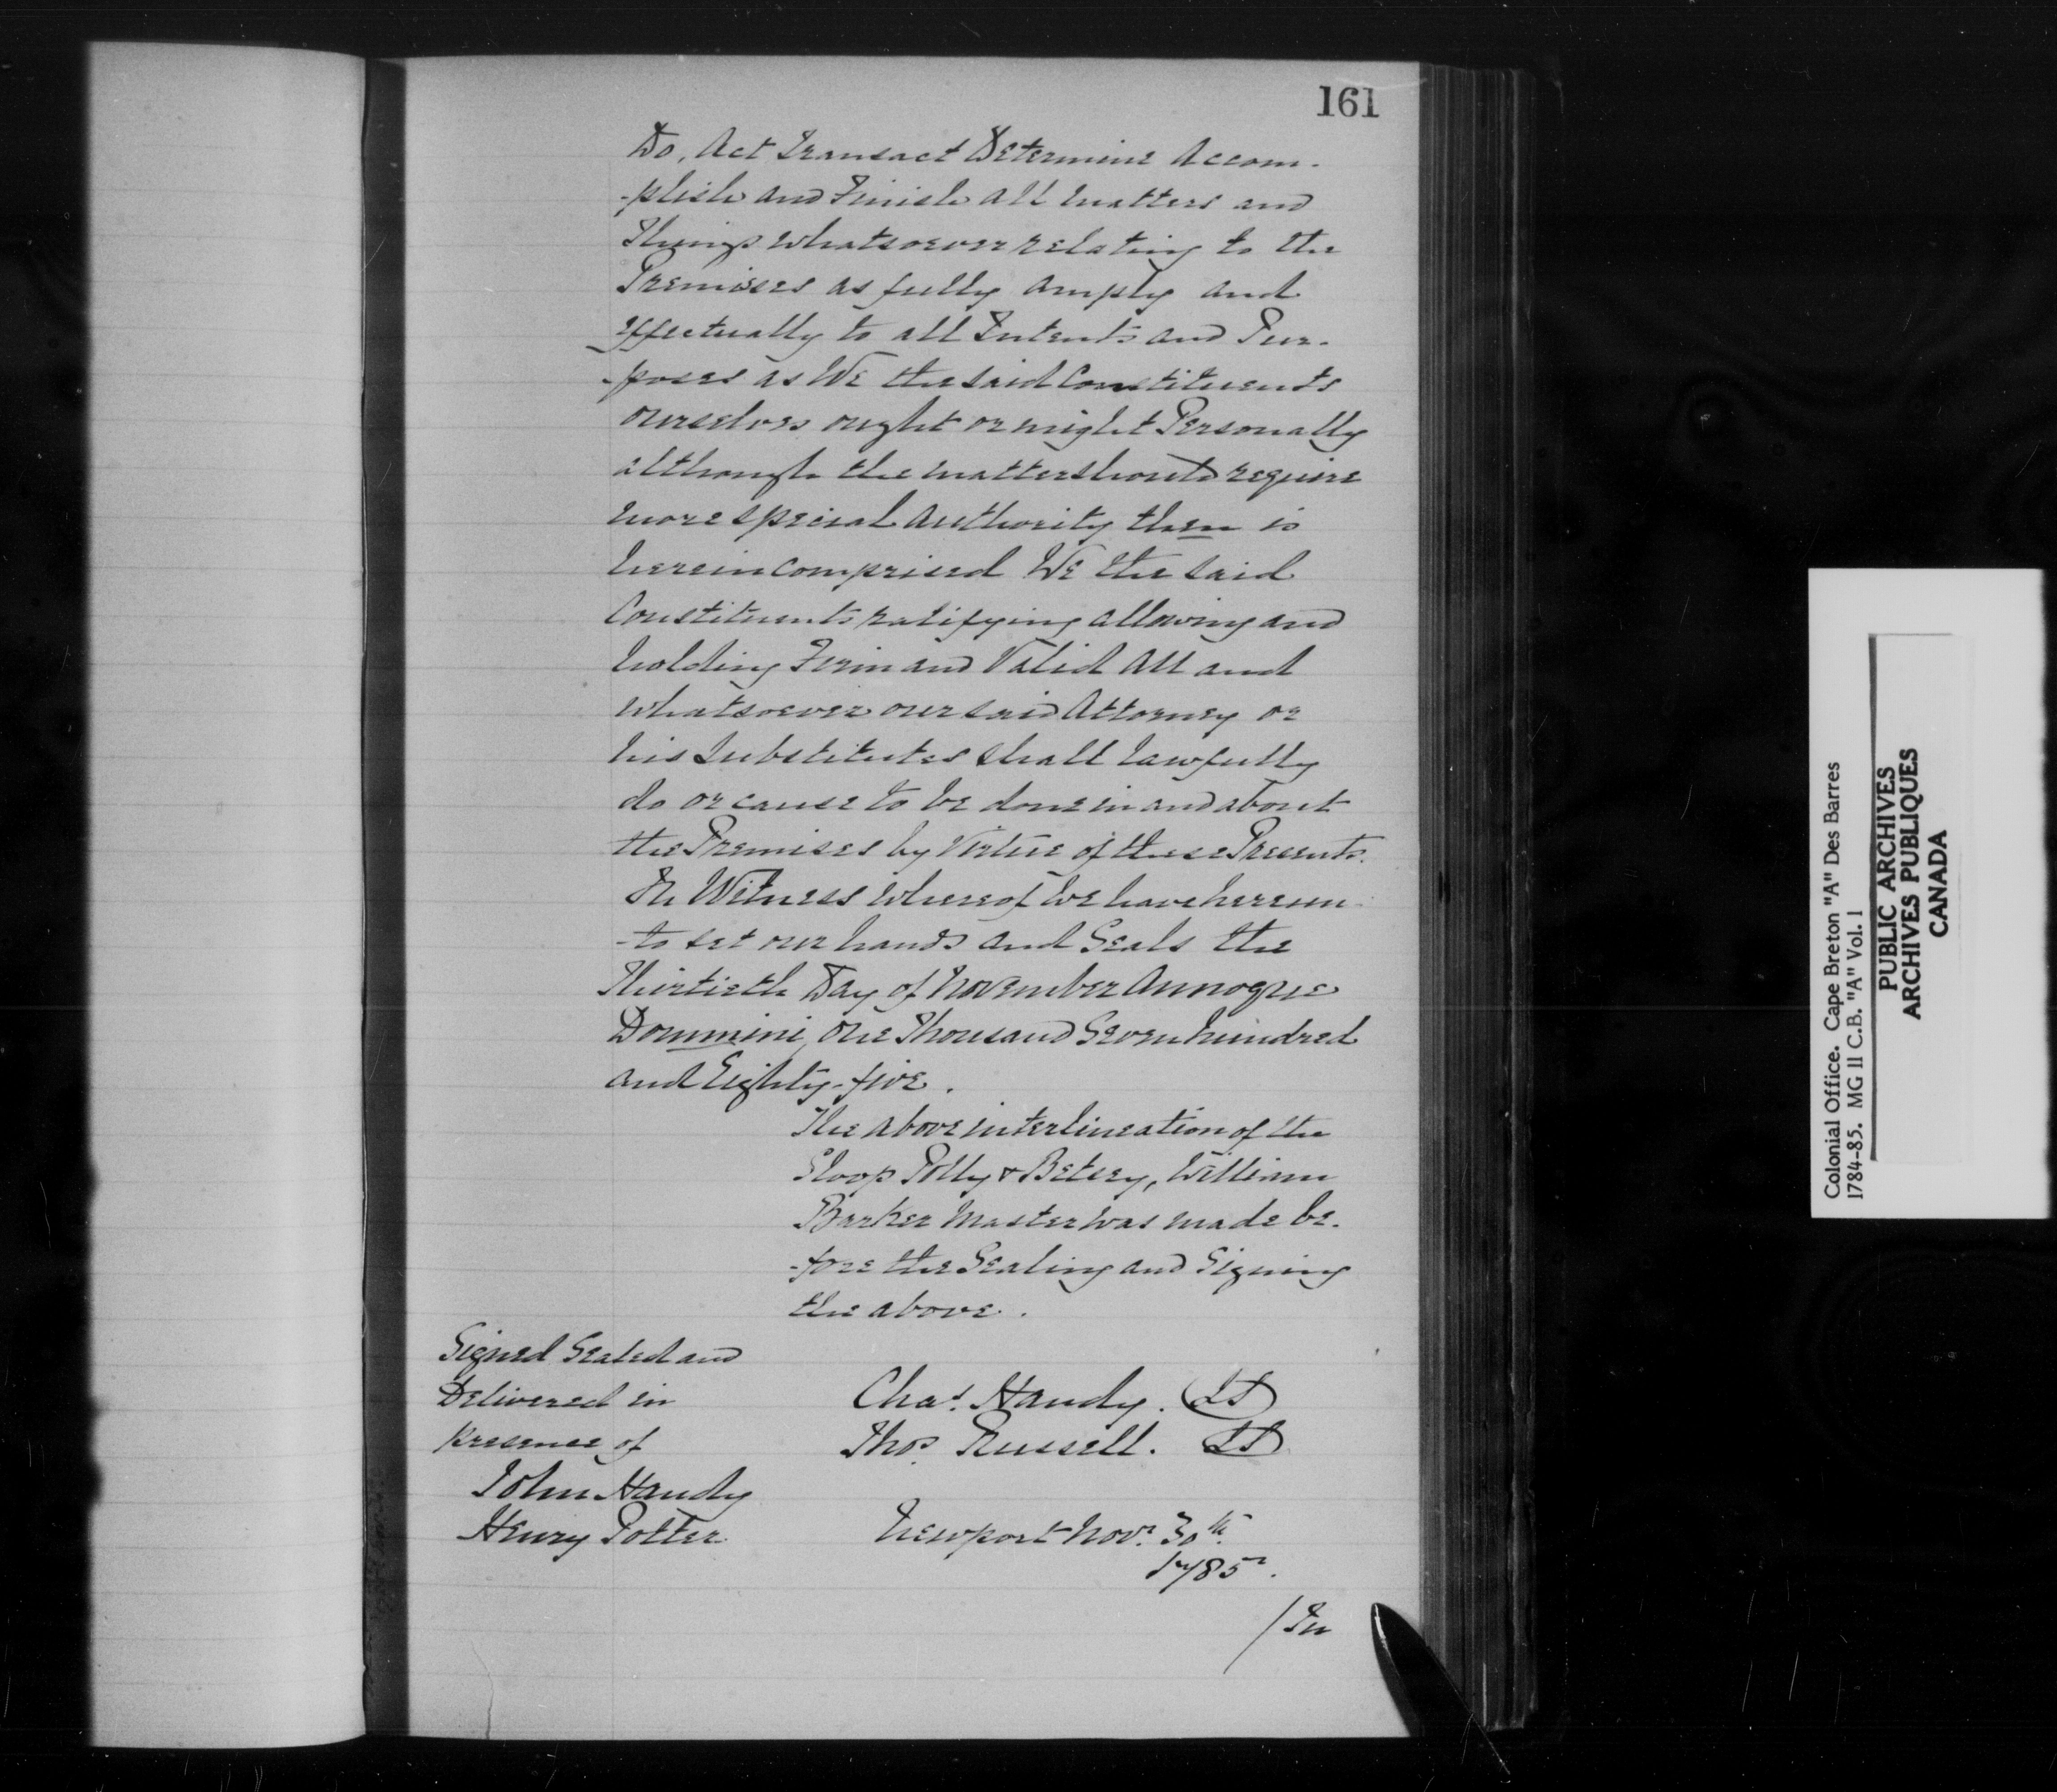 161
Do, Act Transact Determine Accom-
-plish and Finish all matters and
Things whatsoever relating to the
Premises as fully amply and
effectually to all Intents and Pur-
-poses as We the said Constituents
ourselves ought or might Personally
although the matter should require
more special authority then is
herein comprised We the said
Constituents ratifying allowing and
holding Firm and Valid all and
whatsoever our said Attorney or
his Substitutes shall lawfully
do or cause to be done in and about
the Premises by Virtue of these Presents.
In Witness whereof we have hereun-
-to set our hands and Seals the
Thirtieth Day of November Annoque
Dommini, One Thousand Seven hundred
and Eighty-five.
The above interlineation of the
Sloop Polly & Betsey, William
Barker Master was made be-
-fore the Sealing and Signing
the above.
Signed Sealed and
Delivered in
presence of
John Handy
Henry Potter
Chas. Handy. LS
Thos. Russell. LS
Newport Novr. 30th.
1785.
/In
Colonial Office. Cape Breton "A" Des Barres
1784-85. MG 11 C.B. "A" Vol. 1
PUBLIC ARCHIVES
ARCHIVES PUBLIQUES
CANADA